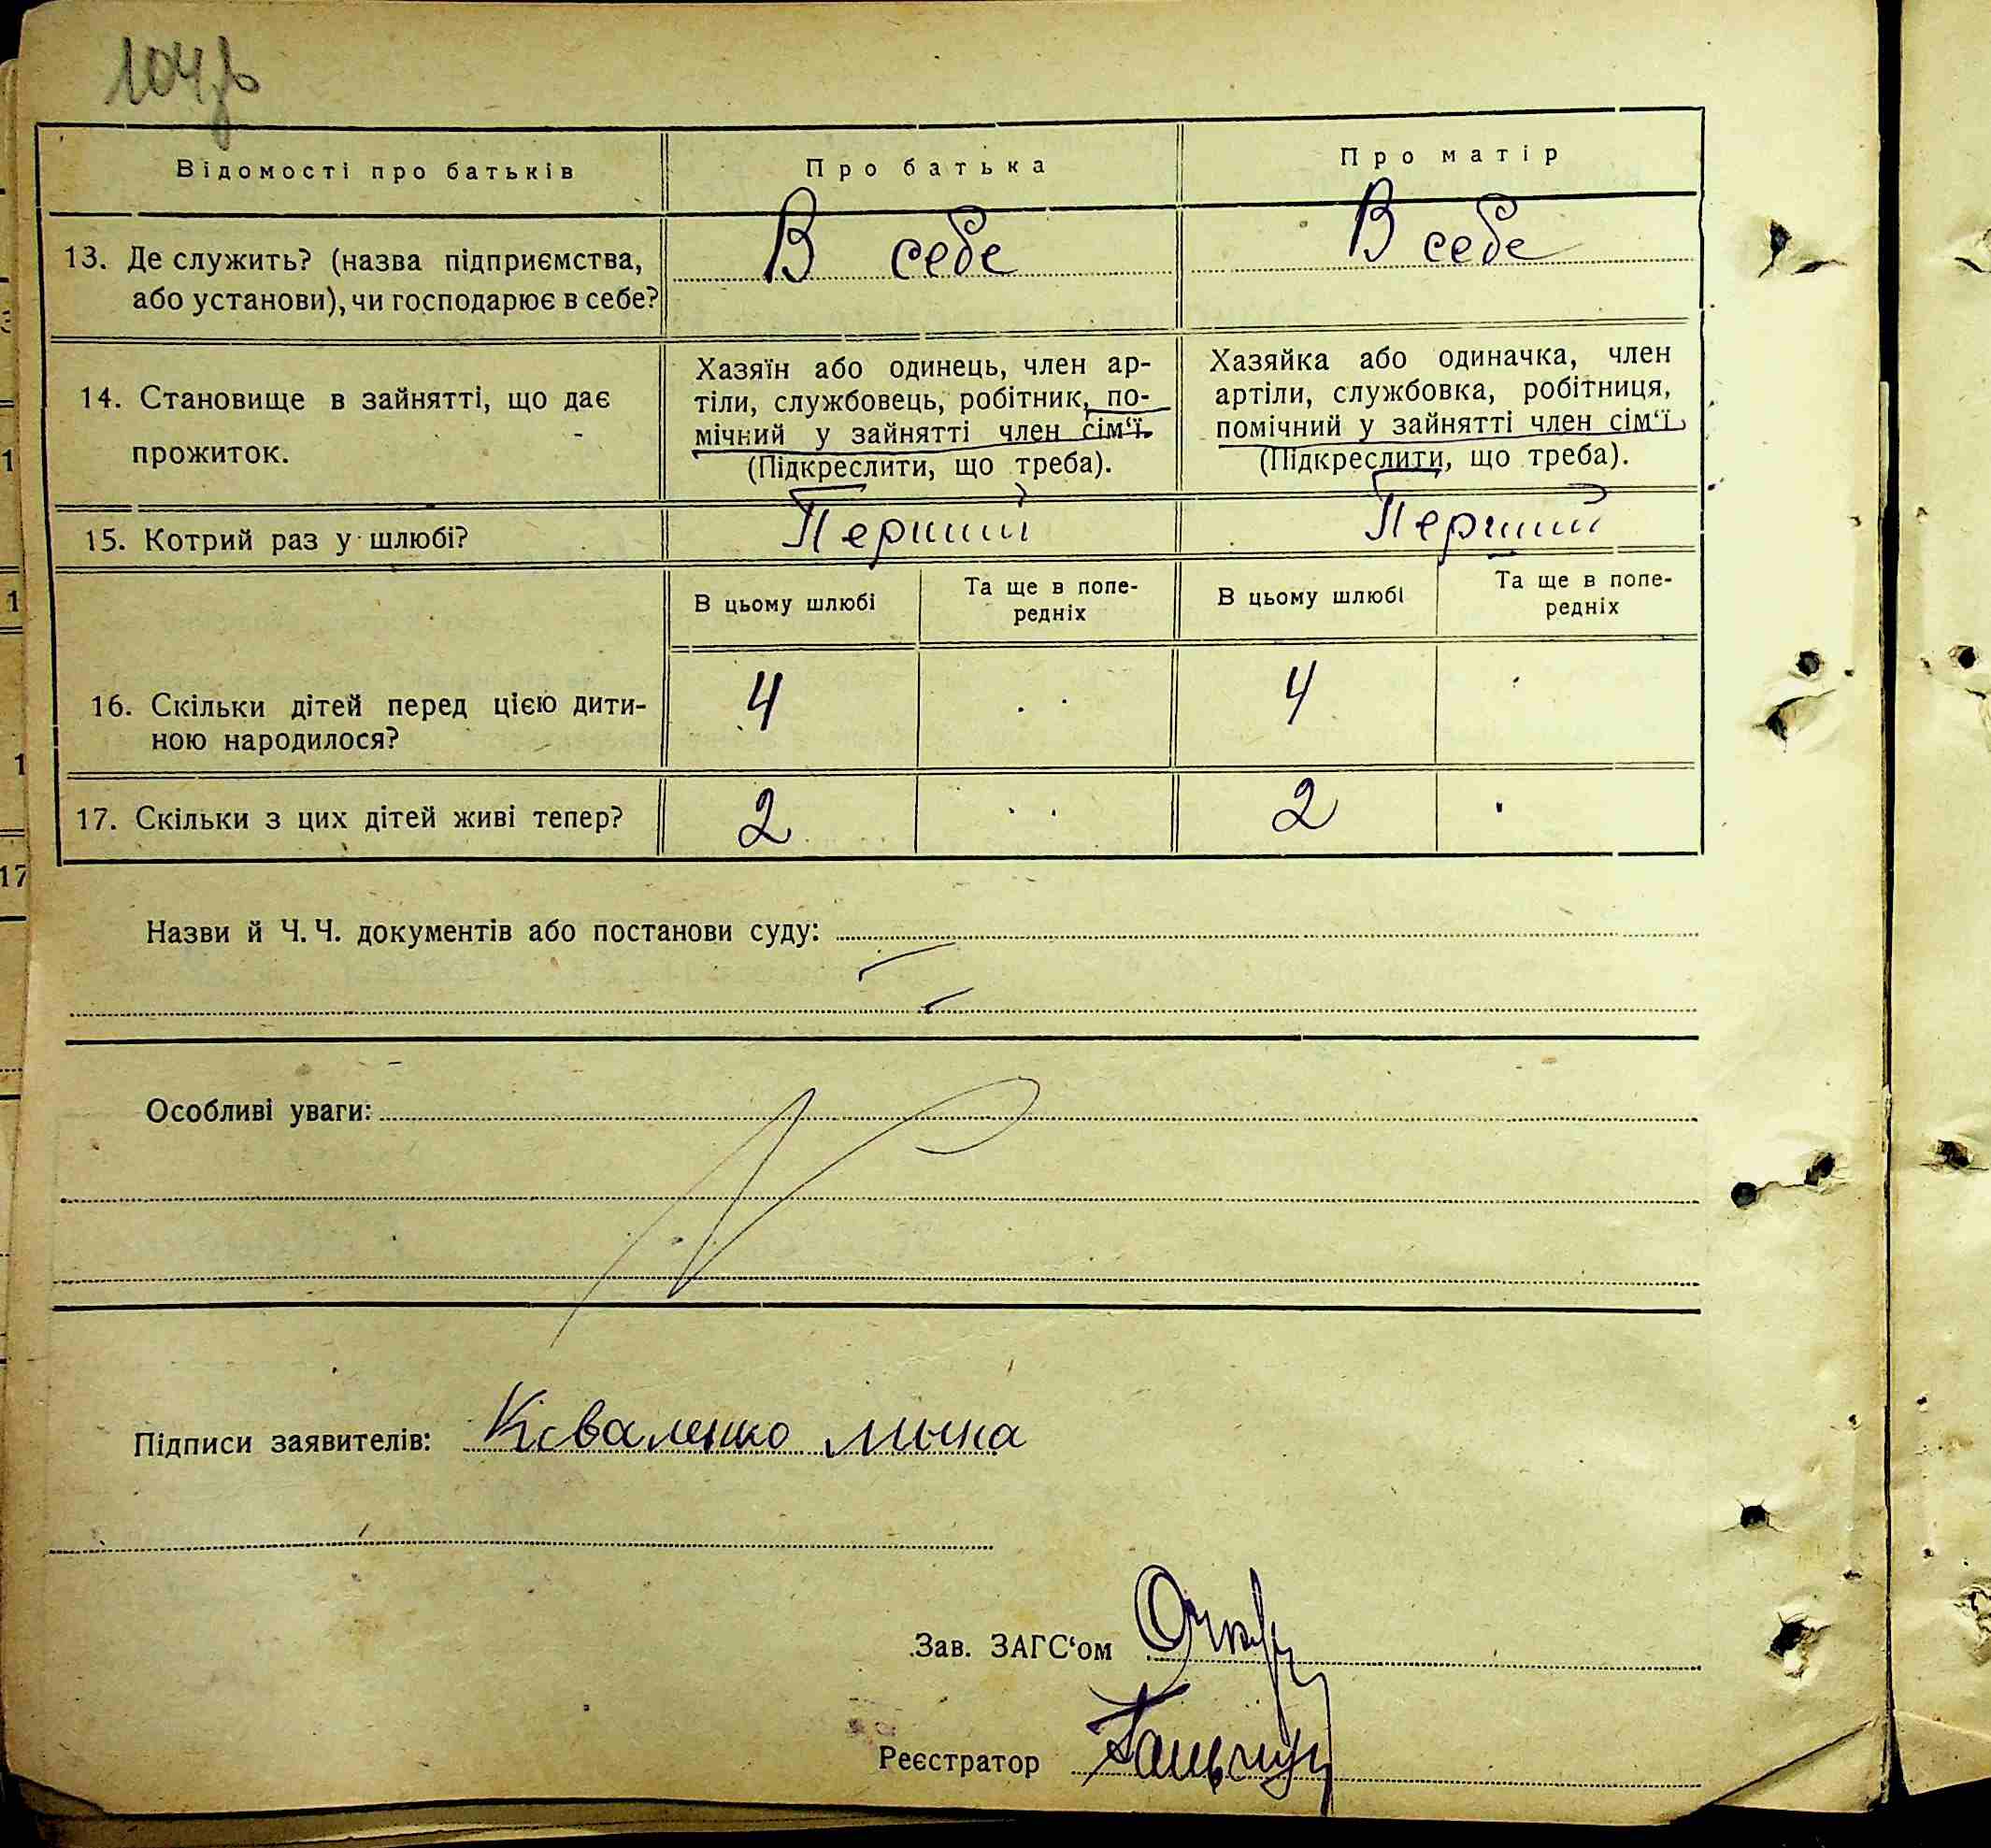 104
Відомості про батьків
Про батька
Про матір
13. Де служить? (назва підприємства,
або установи), чи господарює в себе?
В себе
В себе
14. Становище в зайнятті, що дає
прожиток.
Хазяїн або одинець, член ар-
тіли, службовець, робітник, по-
мічний у зайнятті член сім‘ї.
(Підкреслити, що треба).
Хазяйка або одиначка, член
артіли, службовка, робітниця,
помічний у зайнятті член сім‘ї.
(Підкреслити, що треба).
15. Котрий раз у шлюбі?
Перший
Перший
В цьому шлюбі
Та ще в попе-
редніх
В цьому шлюбі
Та ще в попе-
редніх
16. Скільки дітей перед цією дити-
ною народилося?
4
4
17. Скільки з цих дітей живі тепер?
2
2
Назви й Ч. Ч. документів або постанови суду:
Особливі уваги:
Підписи заявителів: Коваленко мына
Зав. ЗАГС‘ом
Реєстратор